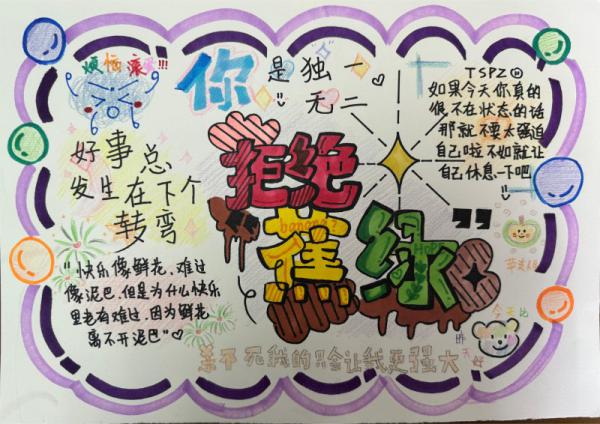 烦恼滚蛋!!!
你是独一
无二
TSPZ®
如果今天你真的
很不在状态的话
那就不要太强迫
自己啦不如就让
自己休息一下吧
好事总
发生在下个
转弯
拒绝
banana?
蕉绿"
HOPE
"快乐像鲜花,难过
像泥巴,但是为什么快乐
里老有难过,因为鲜花
离不开泥巴"
今天比
昨天好
杀不死我的只会让我更强大